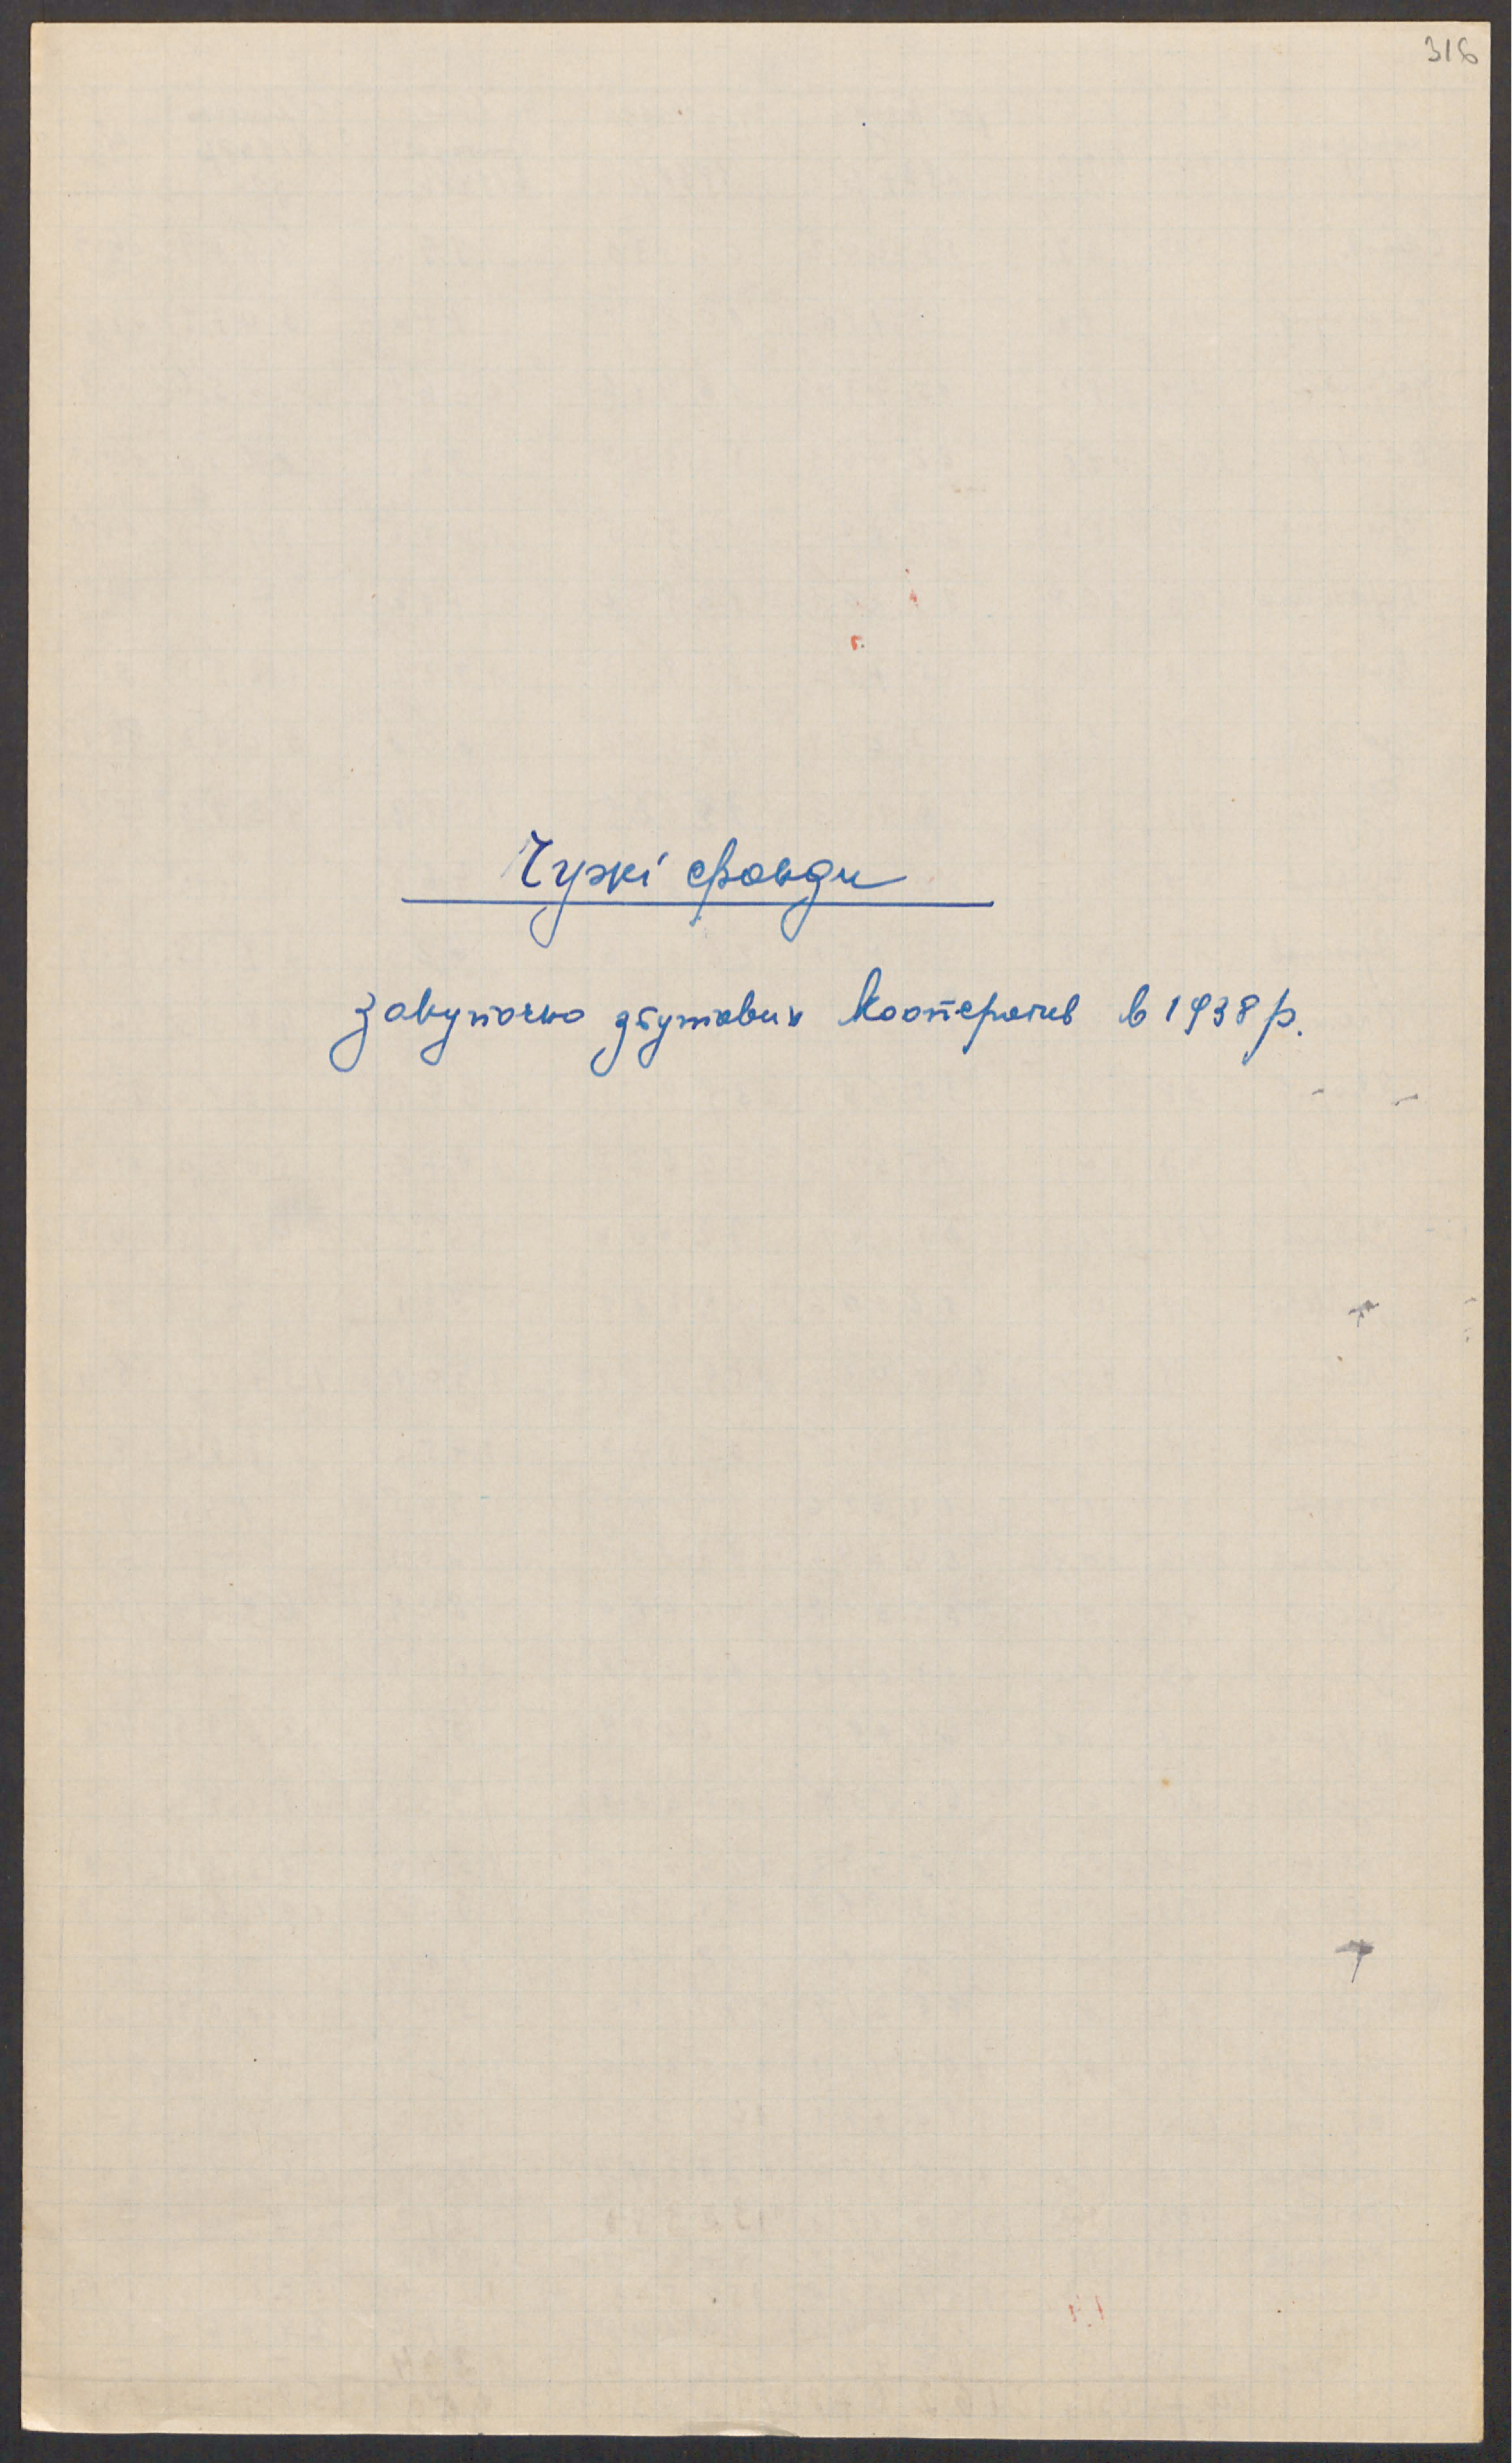 316
Чужі фонди
закупочно збутових кооператив в 1938 р.